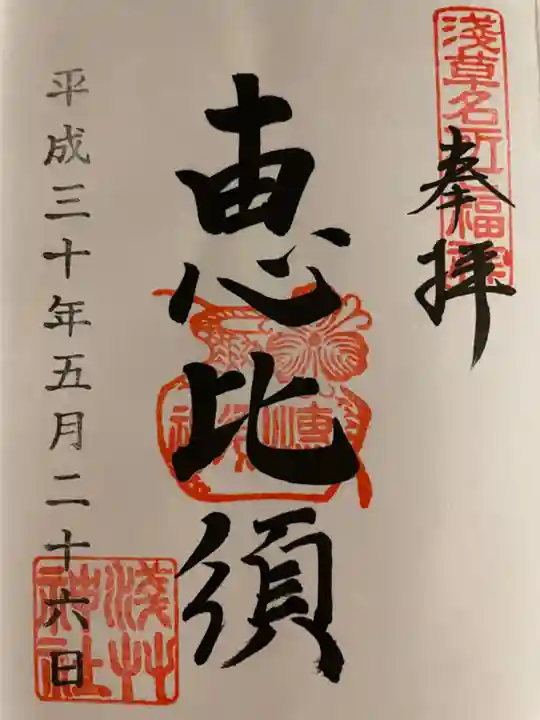 淺草名所七福神
奉拝
恵比須
恵比須神
平成三十年五月二十六日
淺草神社